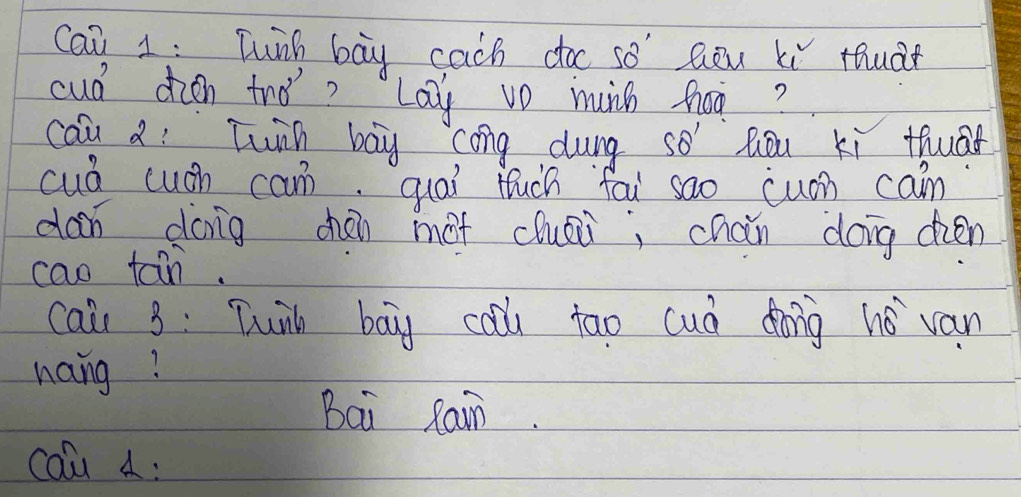 Câu 1: Trình bày cách đọc số liệu kĩ thuật
của điện trở? Lấy VD minh hoạ?
Câu 2: Trình bày công dụng số liệu kĩ thuật
của cuộn cảm. giải thích tại sao cuộn cảm
dẫn dòng điện một chiều, chặn dòng điện
cao tần.
Câu 3: Trình bày cấu tạo của đồng hồ vạn
năng!
Bài làm.
Câu 1: